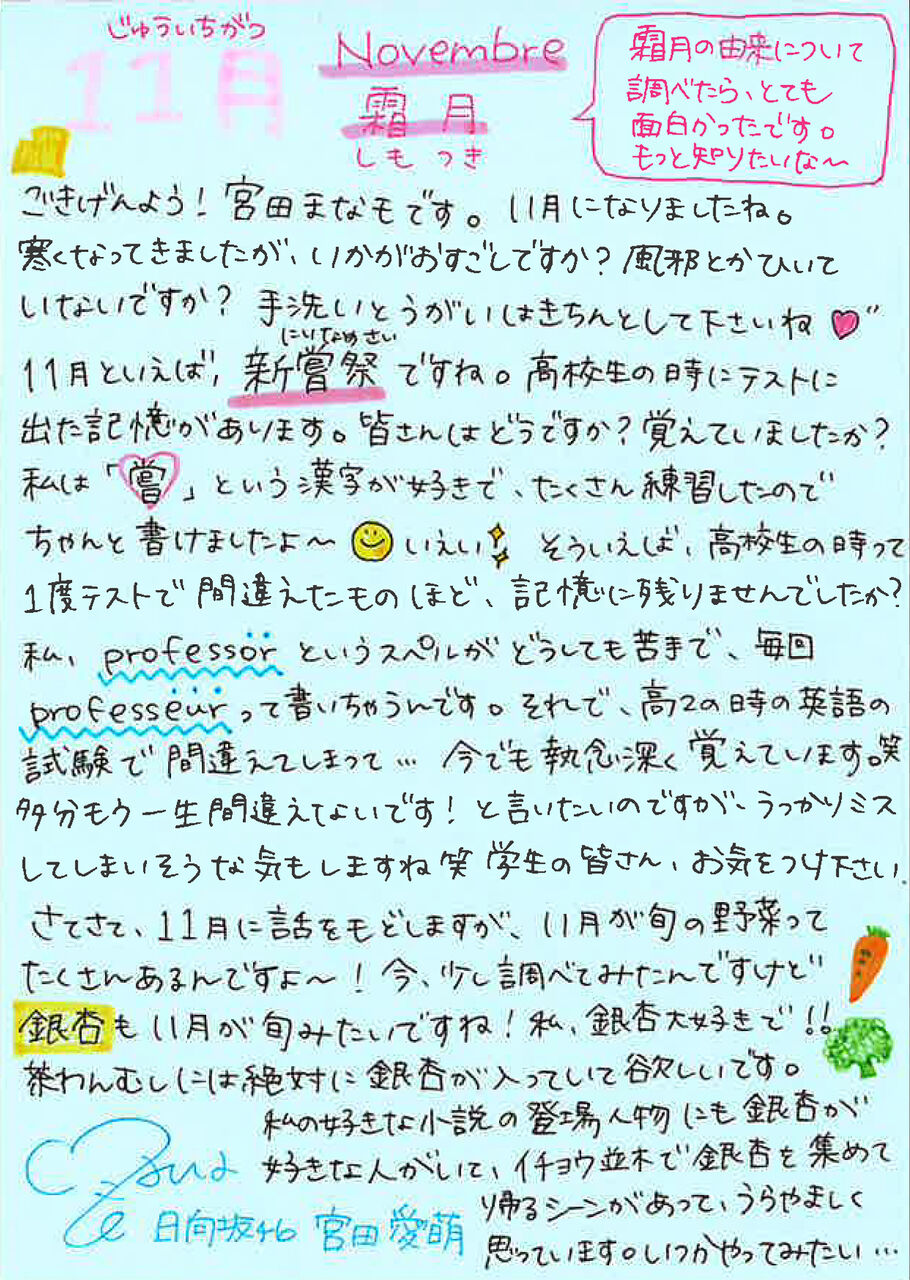 じゅういちがつ
11月
Novembre
霜月
しもつき
霜月の由来について
調べたら、とても
面白かったです。
もっと知りたいな〜
ごきげんよう！宮田まなもです。11月になりましたね。
寒くなってきましたが、いかがおすごしですか？風邪とかひいて
いないですか？手洗いとうがいはきちんとして下さいね
にいなめさい
11月といえば、新嘗祭ですね。高校生の時にテストに
出た記憶があります。皆さんはどうですか？覚えていましたか？
私は「嘗」という漢字が好きで、たくさん練習したので
ちゃんと書けましたよ〜 いえい そういえば、高校生の時って
1度テストで間違えたものほど、記憶に残りませんでしたか？
私、professorというスペルがどうしても苦まで、毎回
professeurって書いちゃうんです。それで、高2の時の英語の
試験で間違えてしまって… 今でも執念深く覚えています。笑
多分もう一生間違えてないです！と言いたいのですが、うっかりミス
してしまいそうな気もしますね笑 学生の皆さん、お気をつけ下さい.
さてさて、11月に話をもどしますが、11月が旬の野菜って
たくさんあるんですよ〜！今、少し調べてみたんですけど
銀杏も11月が旬みたいですね！私、銀杏大好きで!!
茶わんむしには絶対に銀杏が入っていて欲しいです。
私の好きな小説の登場人物にも銀杏が
好きな人がいて、イチョウ並木で銀杏を集めて
帰るシーンがあって、うらやましく
思っています。いつかやってみたい…
日向坂46 宮田愛萌